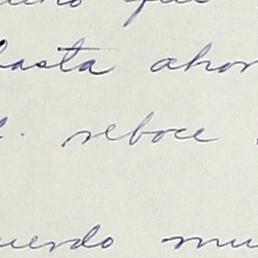 que
hasta ahor
reboce
uerdo mu